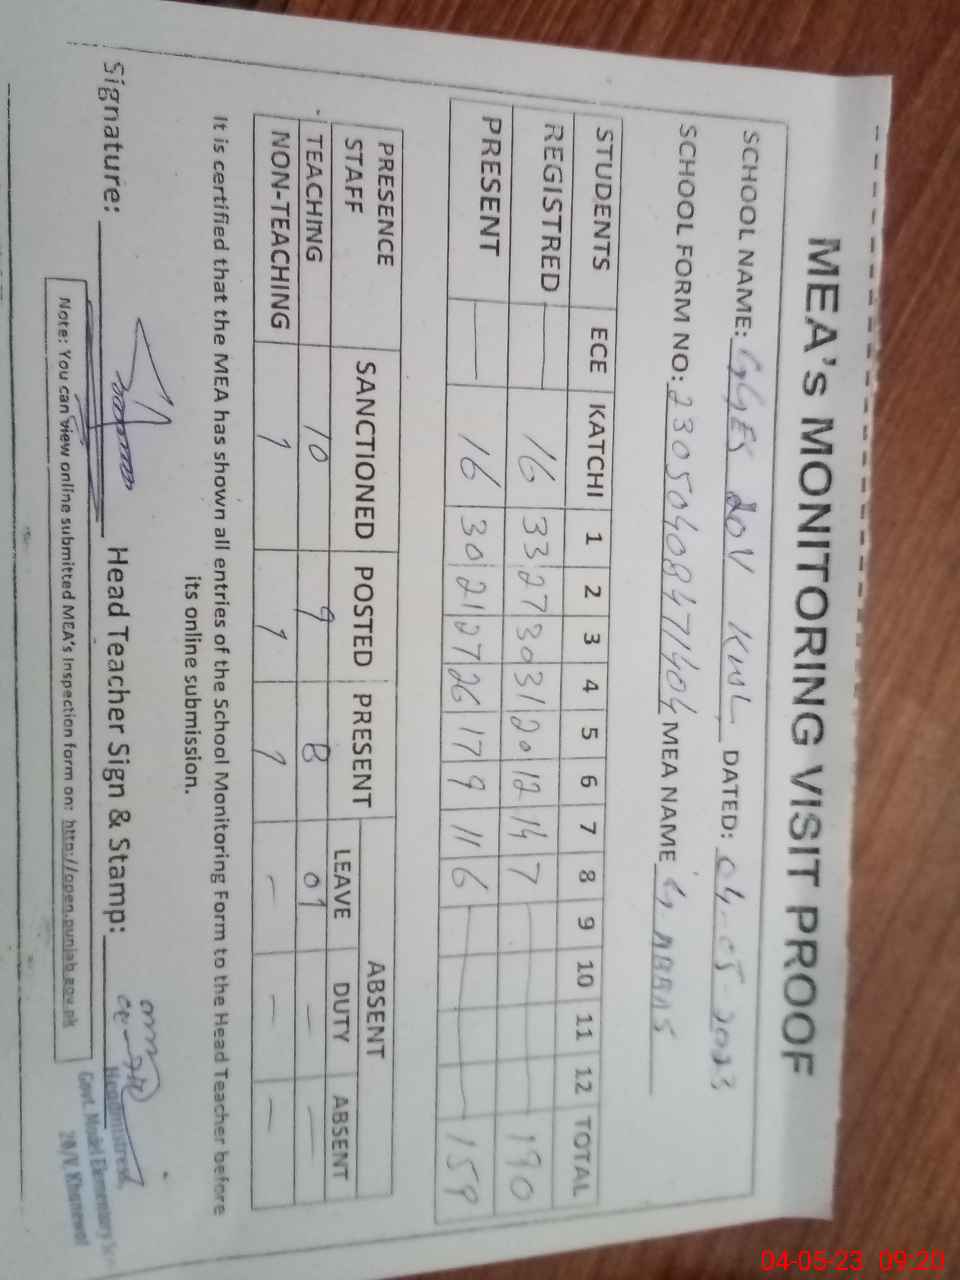 MEA's MONITORING VISIT PROOF
SCHOOL NAME: GGES 20V KWL DATED: 04-05-2023
SCHOOL FORM NO: 23050408471404 MEA NAME G ABBAS
STUDENTS ECE KATCHI 1 2 3 4 5 6 7 8 9 10 11 12 TOTAL
REGISTRED — 16 33 27 30 31 20 12 14 7 — 190
PRESENT — 16 30 21 27 26 17 9 11 6 — 159
PRESENCE STAFF SANCTIONED POSTED PRESENT ABSENT
LEAVE DUTY ABSENT
TEACHING 10 9 8 01 — —
NON-TEACHING 1 1 1 — — —
It is certified that the MEA has shown all entries of the School Monitoring Form to the Head Teacher before
its online submission.
Signature: Head Teacher Sign & Stamp:
Headmistress
Govt. Model Elementary
20/V. Khanewal
Note: You can view online submitted MEA's Inspection form on: http://open.punjab.gov.pk
04-05-23 09:20